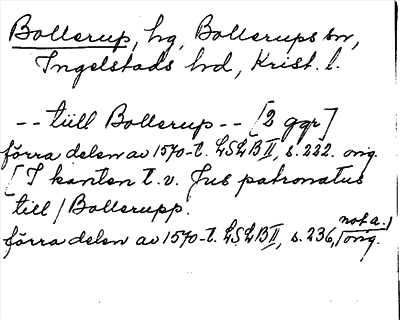 Bollerup, hg, Bollerups sn,
Ingelstads hd, Krist. l.
-- tiill Bollerup -- [2 ggr]
förra delen av 1570-t. LSLB II, s. 222. orig.
[I kanten t. v. Jus patronatus
till / Bollerupp.
not a.)
förra delen av 1570-t. LSLB II, s. 236, orig.